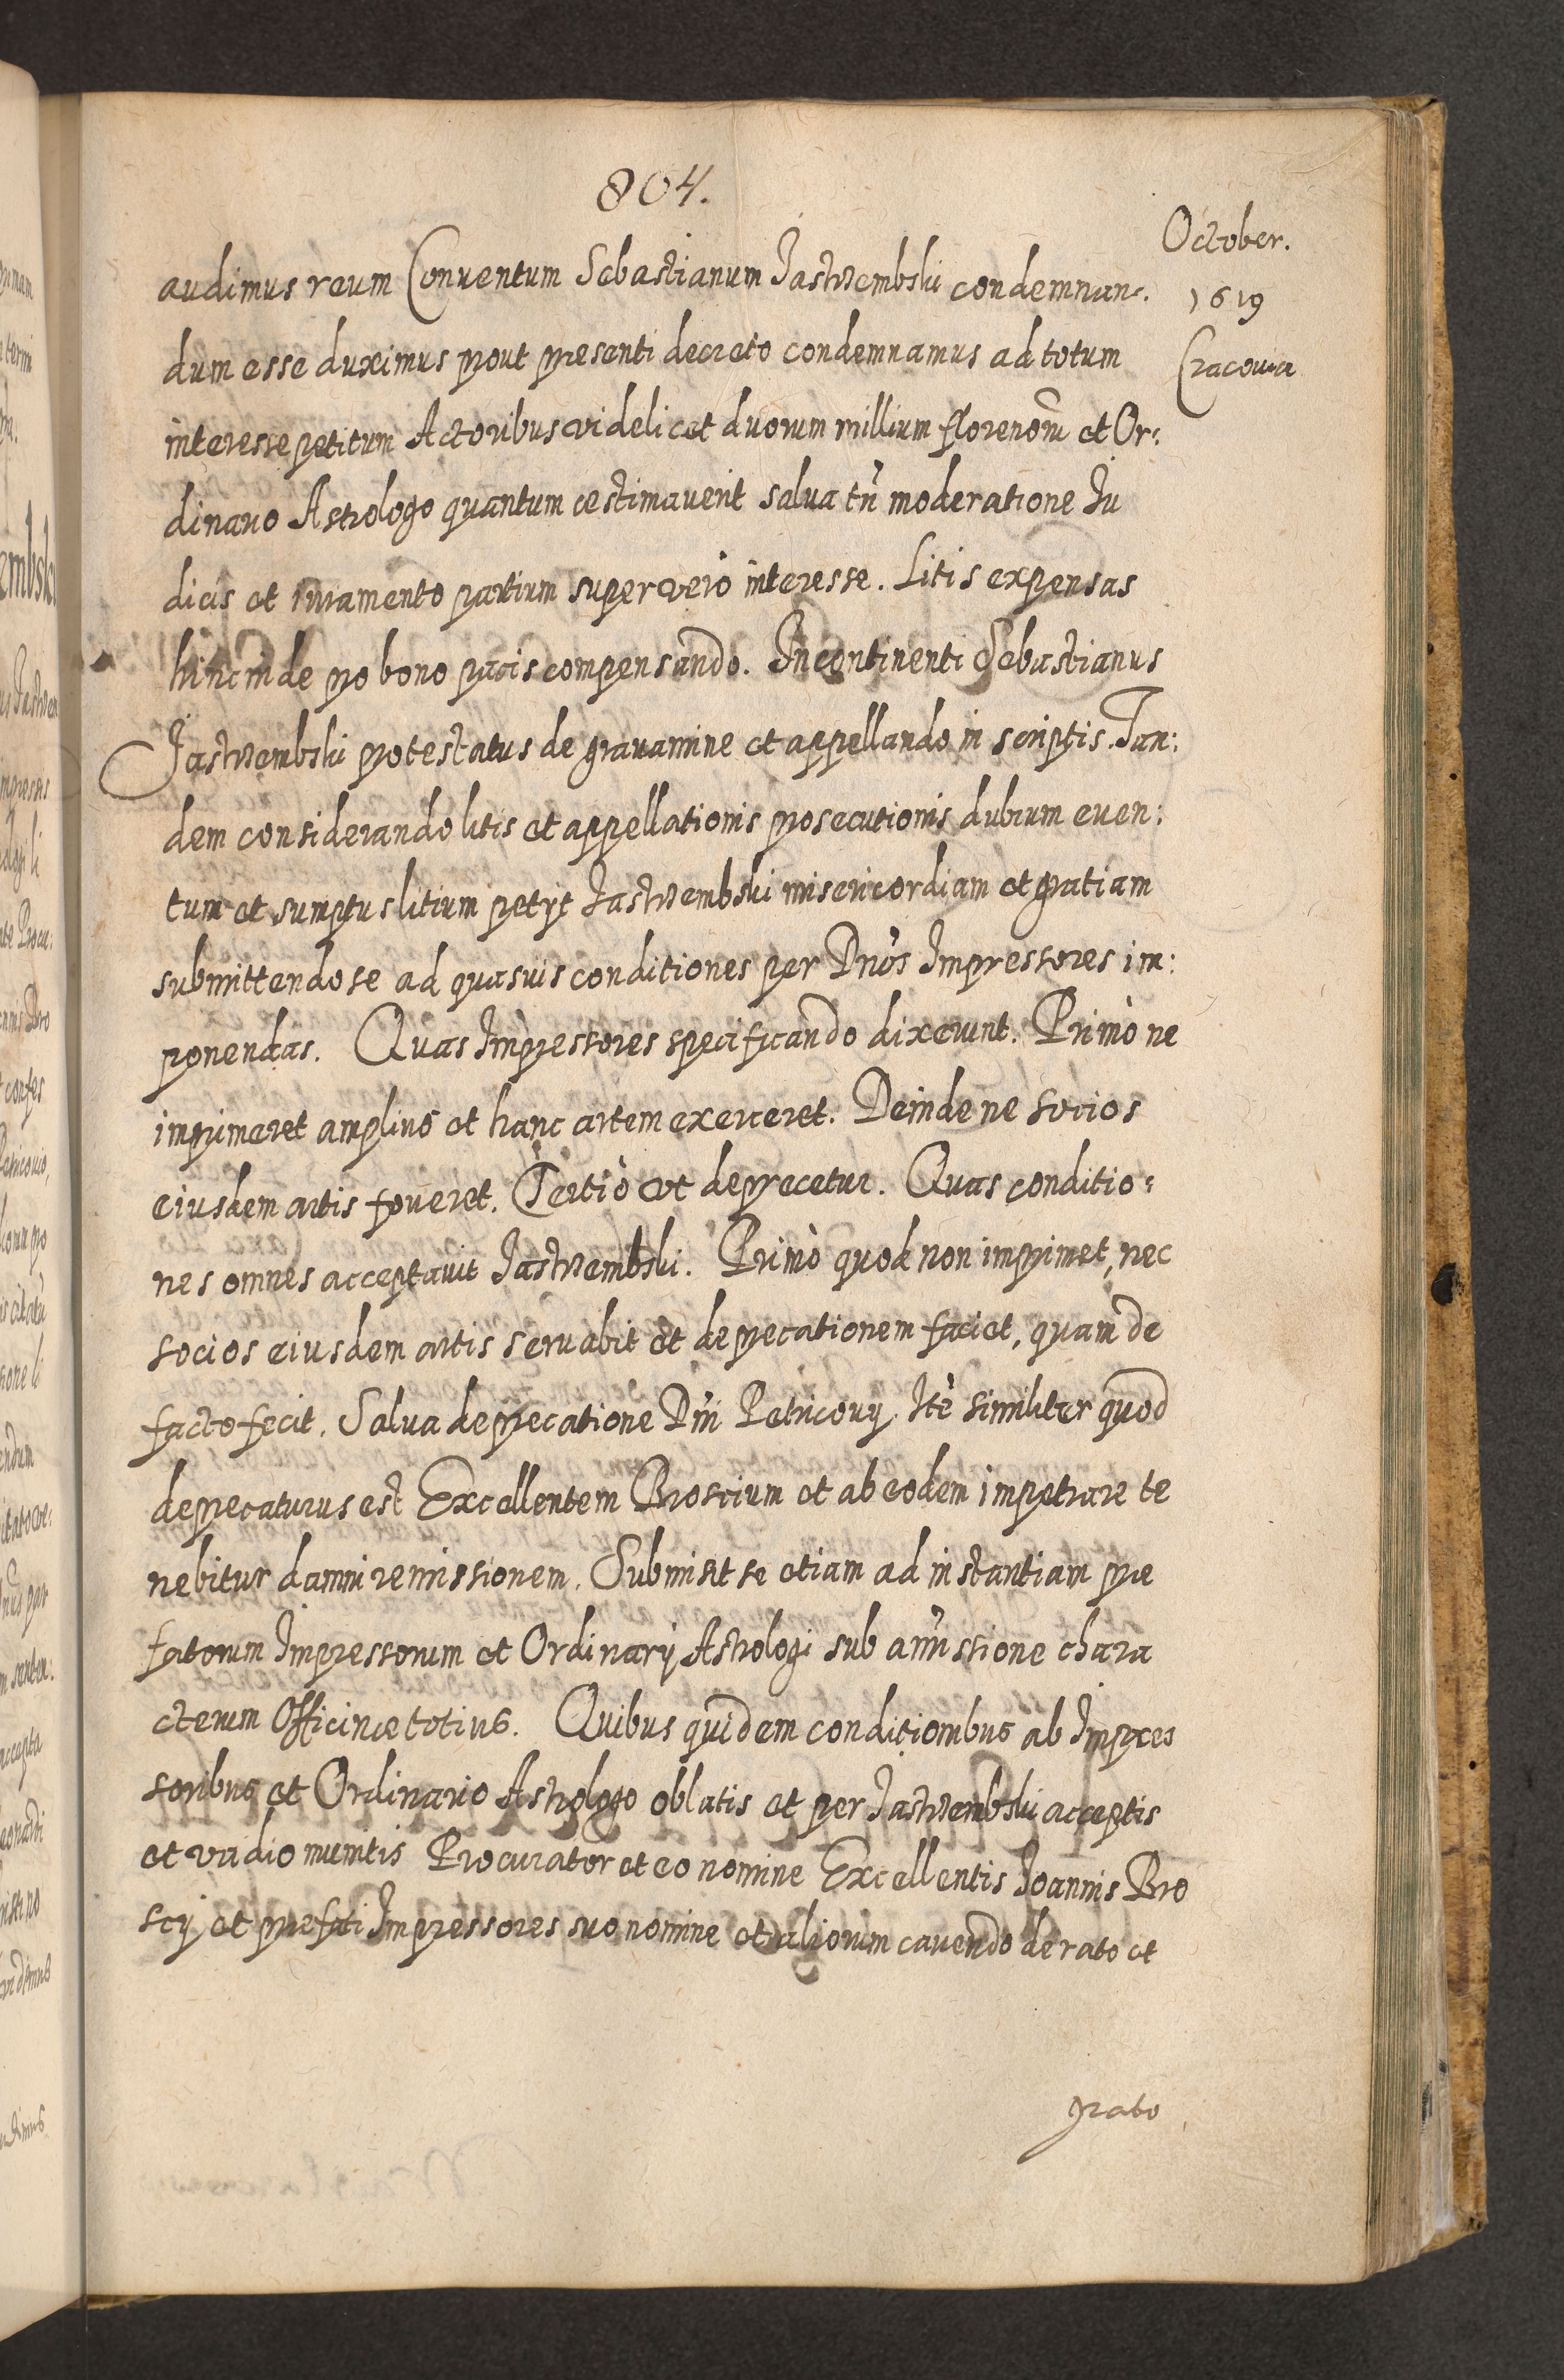 804.
October.
1619
Cracouia
audimus reum Conuentum Sebastianum Jastrzembski condemnan:
dum esse duximus prout præsenti decreto condemnamus ad totum
interesse petitum Actoribus videlicet duorum millium florenorũ et Or:
dinario Astrologo quantum æstimauerit salua tñ moderatione Iu
dicis et iuramento partium super vero interesse. Litis expensas
hinc inde pro bono pacis compensando. Incontinenti Sebastianus
Jastrzembski protestatus de grauamine et appellando in scriptis. Tan:
dem considerando litis et appellationis prosecutionis dubium euen:
tum et sumptus litium petijt Jastrzembski misericordiam et gratiam
submittendo se ad quasuis conditiones per Dnõs Impressores im:
ponendas. Quas Impressores specificando dixerunt. Primò ne
imprimeret amplius et hanc artem exerceret. Deinde ne socios
eiusdem artis foueret. Tertiò vt deprecetur. Quas conditio:
nes omnes acceptauit Jastrzembski. Primò quod non imprimet, nec
socios eiusdem artis seruabit et deprecationem faciet, quam de
facto fecit. Salua deprecatione Dñi Petricouij. Itẽ similiter quod
deprecaturus est Excellentem Broscium et ab eodem impetrare te
nebitur damni remissionem. Submisit se etiam ad instantiam præ
fatorum Impressorum et Ordinarij Astrologi sub amissione chara
cterum Officinæ totius. Quibus quidem conditionibus ab Impres
soribus et Ordinario Astrologo oblatis et per Jastrzembski acceptis
et vadio munitis Procurator et eo nomine Excellentis Joannis Bro
scij et præfati Impressores suo nomine et aliorum cauendo de rato et
grato